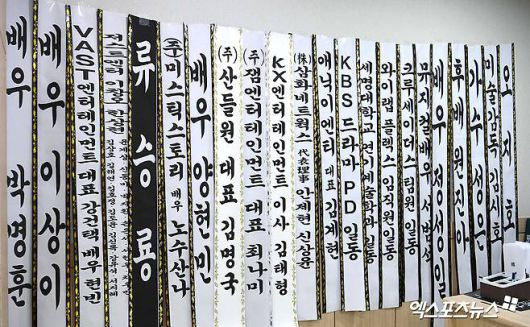 배우 박명훈
배우 이상이
VAST엔터테인먼트 대표 강건택 배우 현빈
저스트엔터
류승룡
(주)미스틱스토리 배우 노수산나
배우 양현민
(주)산들원 대표 김명국
(주)잼엔터테인먼트 대표 최나미
KX엔터테인먼트 이사 김태형
(株)삼화네트웍스 代表理事 안제현 신상윤
애닉이엔티 대표 김계현
KBS 드라마 PD 일동
세명대학교 연기예술학과 일동
와이랩 플렉스 임직원 일동
크루세이더스팀원 일동
뮤지컬배우 서범석
배우 정성일
후배 원진아
가수 성은
미술감독 김시효
오지호
엑스포츠뉴스